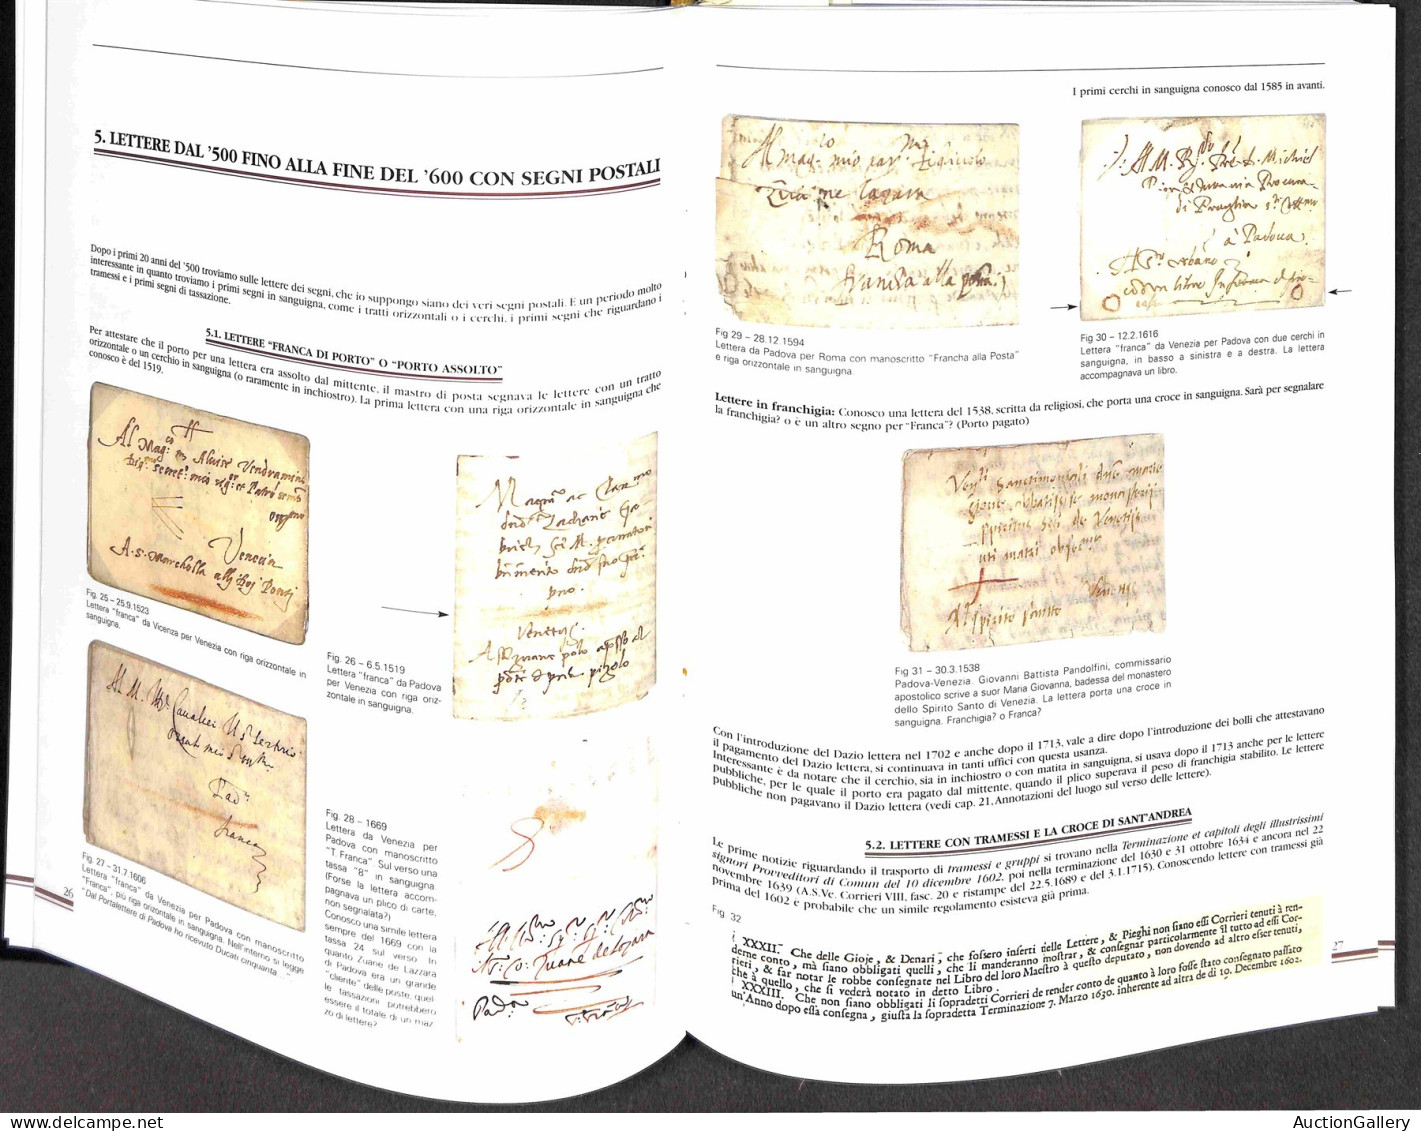 5. LETTERE DAL '500 FINO ALLA FINE DEL '600 CON SEGNI POSTALI
Dopo i primi 20 anni del '500 troviamo sulle lettere dei segni, che io suppongo siano dei veri segni postali. È un periodo molto
interessante in quanto troviamo i primi segni in sanguigna, come i tratti orizzontali o i cerchi, i primi segni che riguardano i
tramessi e i primi segni di tassazione.
5.1. LETTERE "FRANCA DI PORTO" O "PORTO ASSOLTO"
Per attestare che il porto per una lettera era assolto dal mittente, il mastro di posta segnava le lettere con un tratto
orizzontale o un cerchio in sanguigna (o raramente in inchiostro). La prima lettera con una riga orizzontale in sanguigna che
conosco è del 1519.
Venecia
Fig. 25 – 25.9.1523
Lettera "franca" da Vicenza per Venezia con riga orizzontale in
sanguigna.
Fig. 26 – 6.5.1519
Lettera "franca" da Padova
per Venezia con riga oriz-
zontale in sanguigna.
Fig. 27 – 31.7.1606
Lettera "franca" da Venezia per Padova con manoscritto
"Franca", più riga orizzontale in sanguigna. Nell'interno si legge
"Dal Portalettere di Padova ho ricevuto Ducati cinquanta ..."
Fig. 28 – 1669
Lettera da Venezia per
Padova con manoscritto
"T. Franca" Sul verso una
tassa "8" in sanguigna.
(Forse la lettera accom-
pagnava un plico di carte,
non segnalata?)
Conosco una simile lettera
sempre del 1669 con la
tassa 24 sul verso. In
quanto Zuane de Lazzara
di Padova era un grande
"cliente" delle poste, quel
le tassazioni potrebbero
essere il totale di un maz
zo di lettere?
26
I primi cerchi in sanguigna conosco dal 1585 in avanti.
Roma
francha alla posta
à Padova
Fig 29 – 28.12.1594
Lettera da Padova per Roma con manoscritto "Francha alla Posta"
e riga orizzontale in sanguigna
Fig 30 – 12.2.1616
Lettera "franca" da Venezia per Padova con due cerchi in
sanguigna, in basso a sinistra e a destra. La lettera
accompagnava un libro.
Lettere in franchigia: Conosco una lettera del 1538, scritta da religiosi, che porta una croce in sanguigna. Sarà per segnalare
la franchigia? o è un altro segno per "Franca"? (Porto pagato)
Fig 31 – 30.3.1538
Padova-Venezia. Giovanni Battista Pandolfini, commissario
apostolico scrive a suor Maria Giovanna, badessa del monastero
dello Spirito Santo di Venezia. La lettera porta una croce in
sanguigna. Franchigia? o Franca?
Con l'introduzione del Dazio lettera nel 1702 e anche dopo il 1713, vale a dire dopo l'introduzione dei bolli che attestavano
il pagamento del Dazio lettera, si continuava in tanti uffici con questa usanza.
Interessante è da notare che il cerchio, sia in inchiostro o con matita in sanguigna, si usava dopo il 1713 anche per le lettere
pubbliche, per le quale il porto era pagato dal mittente, quando il plico superava il peso di franchigia stabilito. Le lettere
pubbliche non pagavano il Dazio lettera (vedi cap. 21, Annotazioni del luogo sul verso delle lettere).
5.2. LETTERE CON TRAMESSI E LA CROCE DI SANT'ANDREA
Le prime notizie riguardando il trasporto di tramessi e gruppi si trovano nella Terminazione et capitoli degli illustrissimi
signori Provveditori di Comun del 10 dicembre 1602, poi nella terminazione del 1630 e 31 ottobre 1634 e ancora nel 22
novembre 1639 (A.S.Ve. Corrieri VIII, fasc. 20 e ristampe del 22.5.1689 e del 3.1.1715). Conoscendo lettere con tramessi già
prima del 1602 è probabile che un simile regolamento esisteva già prima.
Fig. 32
XXXII. Che delle Gioje, & Denari, che fossero inserti nelle Lettere, & Pieghi non siano essi Corrieri tenuti à ren-
derne conto, mà siano obbligati quelli, che li manderanno mostrar, & consegnar particolarmente il tutto ad essi Cor-
rieri, & far notar le robbe consegnate nel Libro del loro Maestro à questo deputato, non dovendo ad altro esser tenuti,
che à quello, che si vederà notato in detto Libro.
XXXIII. Che non siano obbligati li sopradetti Corrieri de render conto de quanto à loro fosse stato consegnato passato
un'Anno dopo essa consegna, giusta la sopradetta Terminazione 7. Marzo 1630. inherente ad altra de dì 19. Decembre 1602.
27
AuctionGallery